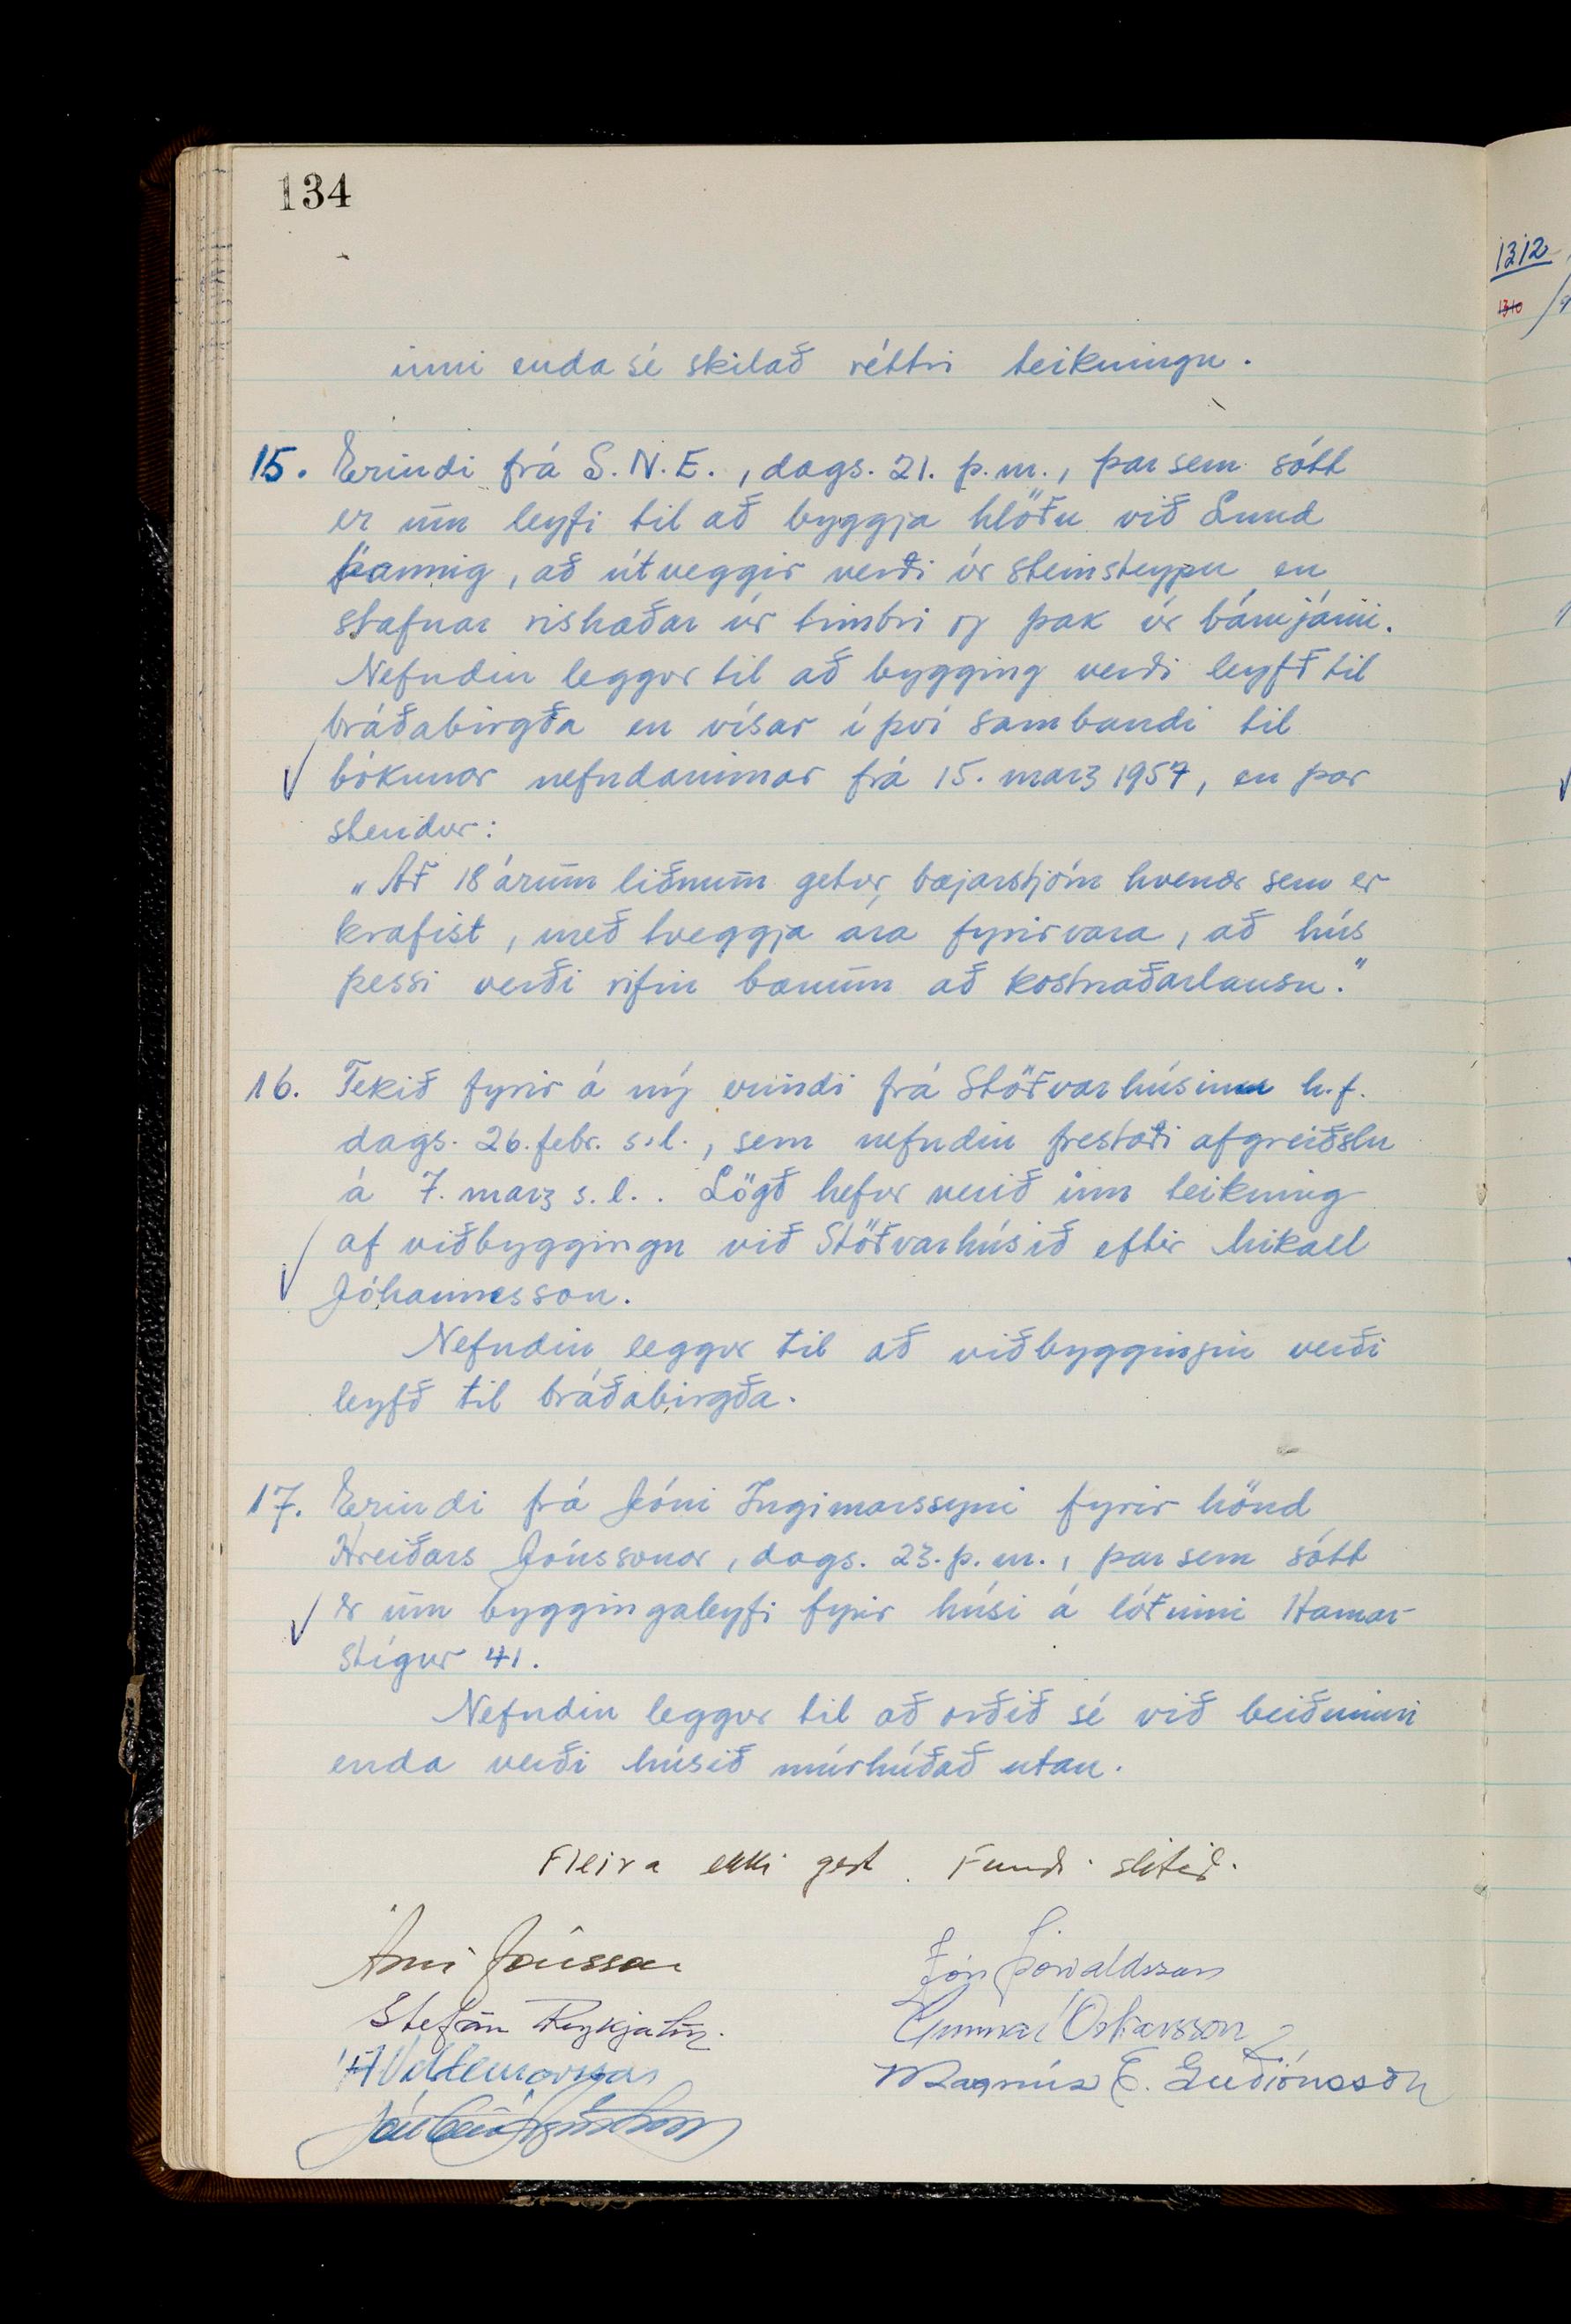 134
inni enda sé skilað réttri teikningu.
15. Erindi frá S.N.E., dags. 21. þ.m., þar sem sótt
er um leyfi til að byggja hlöðu við Lund
þannig, að útveggir verði úr steinsteypu en
stafnar rishæðar úr timbri og þak úr bárujárni.
Nefndin leggur til að bygging verði leyfð til
bráðabirgða en vísar í því sambandi til
bókunar nefndarinnar frá 15. marz 1957, en þar
stendur:
„Að 18 árum liðnum getur bæjarstjórn hvenær sem er
krafist, með tveggja ára fyrirvara, að hús
þessi verði rifin bænum að kostnaðarlausu."
16. Tekið fyrir á ný erindi frá Stöðvarhúsinu h.f.
dags. 26. febr. s.l., sem nefndin frestaði afgreiðslu
á 7. marz s.l.. Lögð hefur verið inn teikning
af viðbyggingu við Stöðvarhúsið eftir Mikael
Jóhannesson.
Nefndin leggur til að viðbyggingin verði
leyfð til bráðabirgða.
17. Erindi frá Jóni Ingimarssyni fyrir hönd
Hreiðars Jónssonar, dags. 23. þ.m., þar sem sótt
er um byggingaleyfi fyrir húsi á lóðinni Hamar-
stígur 41.
Nefndin leggur til að orðið sé við beiðninni
enda verði húsið múrhúðað utan.
Fleira ekki gert. Fundi slitið.
Árni Jónsson
Jón Þorvaldsson
Stefán Reykjalín.
Gunnar Óskarsson
Magnús E. Guðjónsson
1312
1310